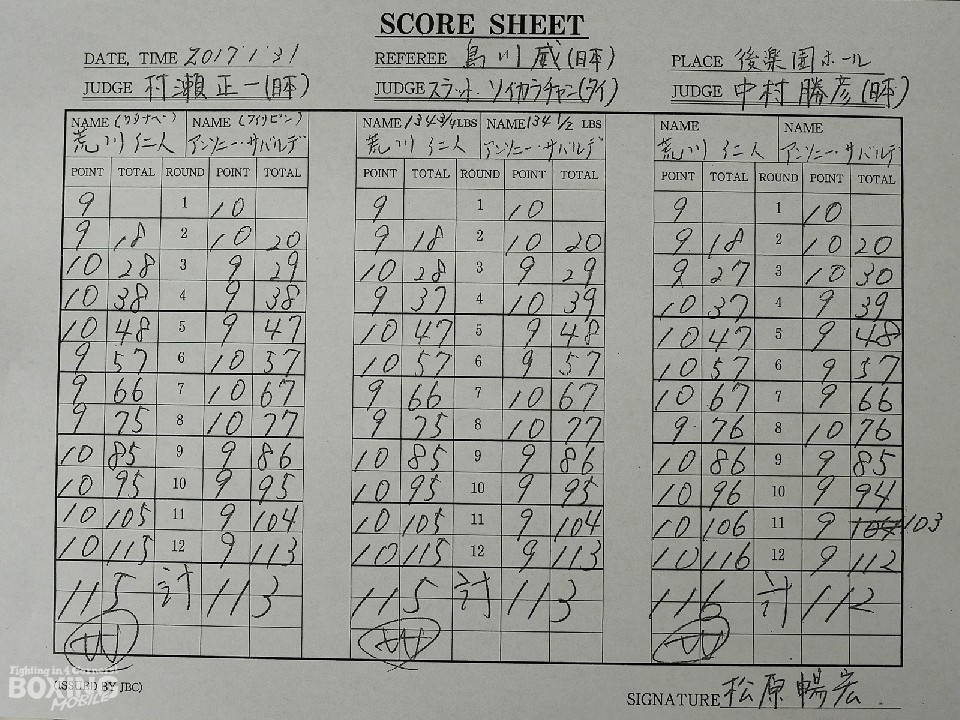 SCORE SHEET
DATE, TIME 2017 1/31 REFEREE 島川 威(日本) PLACE 後楽園ホール
JUDGE 村瀬 正一(日本) JUDGE スラット・ソイカラチャン(タイ) JUDGE 中村 勝彦(日本)
NAME (ワタナベ) NAME (フィリピン) NAME 134 3/4 LBS NAME 134 1/2 LBS NAME NAME
荒川 仁人 アンソニー・サバルデ 荒川 仁人 アンソニー・サバルデ 荒川 仁人 アンソニー・サバルデ
POINT TOTAL ROUND POINT TOTAL POINT TOTAL ROUND POINT TOTAL POINT TOTAL ROUND POINT TOTAL
9 1 10 9 1 10 9 1 10
9 18 2 10 20 9 18 2 10 20 9 18 2 10 20
10 28 3 9 29 10 28 3 9 29 9 27 3 10 30
10 38 4 9 38 9 37 4 10 39 10 37 4 9 39
10 48 5 9 47 10 47 5 9 48 10 47 5 9 48
9 57 6 10 57 10 57 6 9 57 10 57 6 9 57
9 66 7 10 67 9 66 7 10 67 10 67 7 9 66
9 75 8 10 77 9 75 8 10 77 9 76 8 10 76
10 85 9 9 86 10 85 9 9 86 10 86 9 9 85
10 95 10 9 95 10 95 10 9 95 10 96 10 9 94
10 105 11 9 104 10 105 11 9 104 10 106 11 9 103
10 115 12 9 113 10 115 12 9 113 10 116 12 9 112
115 計 113 115 計 113 116 計 112
W W W
Fighting in 4 Corners!
BOXING
MOBILE
(ISSUED BY JBC)
SIGNATURE 松原 暢宏